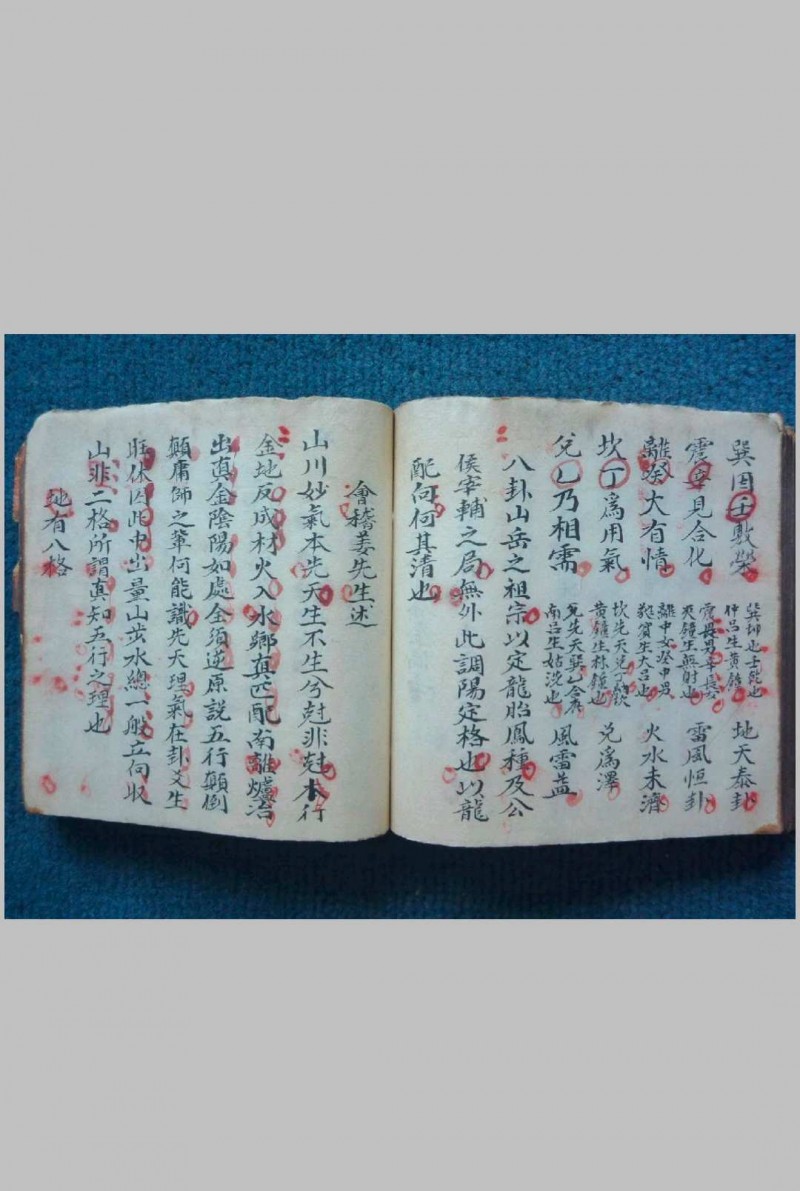 巽因壬敷榮 巽坤也壬乾也仲呂生黃鍾 地天泰卦
震辛見合化 夾鍾生無射也 雷風恒卦
離癸大有情 離中女癸中男蕤賓生大呂也 火水未濟
坎丁爲用氣 黃鍾生林鍾也 兌爲澤
兌乙乃相需 南呂生姑洗也 風雷益
八卦山岳之祖宗以定龍胎鳳種及公
侯宰輔之局無外此調陽定格也以龍
配向何其清也
會稽姜先生述
山川妙氣本先天生不生兮尅非尅木行
金地反成材火入水鄉真匹配南離爐冶
出真金陰陽如處全須逆原說五行顛倒
顛庸師之輩何能識先天理氣在卦爻生
旺休因此中出量山步水總一般立向收
山非二格所謂真知五行之理也
地有八格